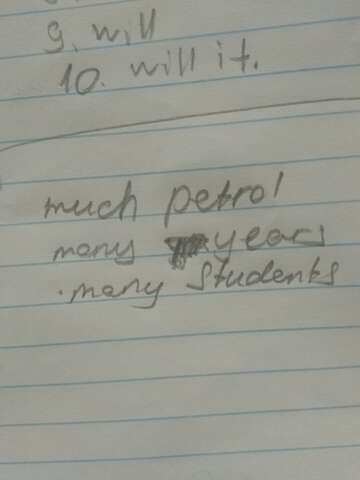 9. will
10. will it.
much petrol
many years
.many students